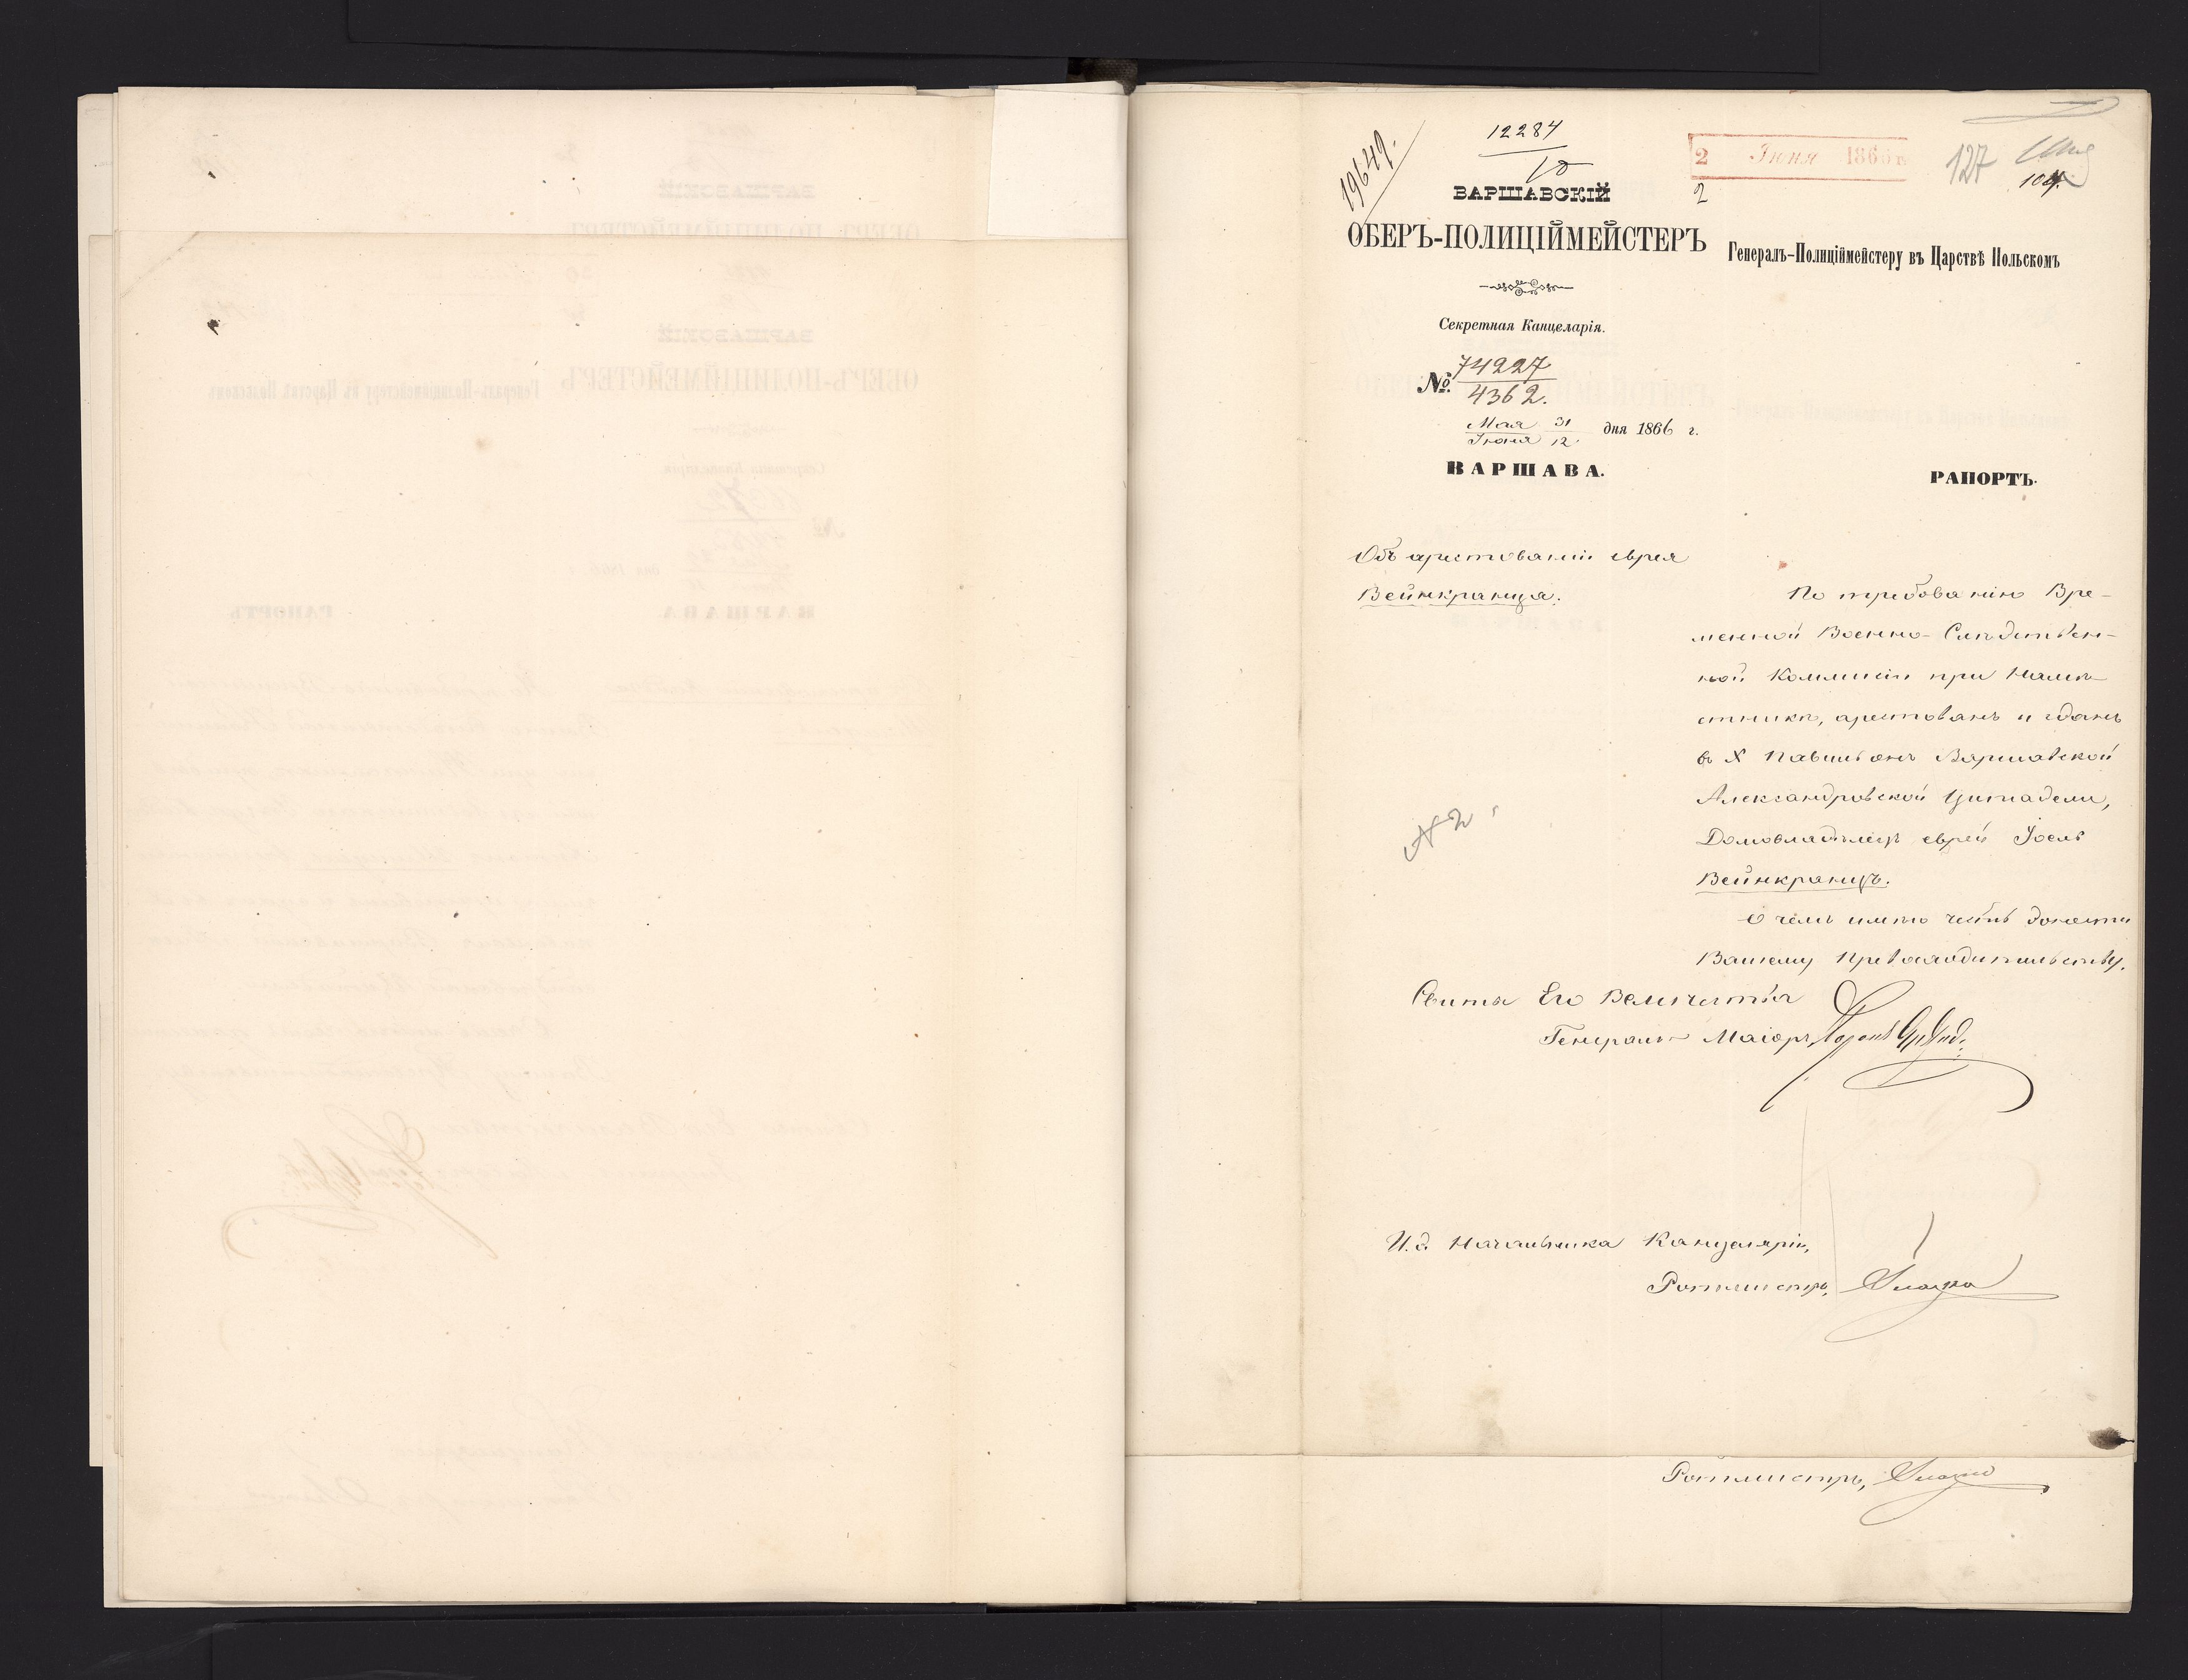 19649.
12284
10
2 Июня 1866 г.
2
127
104.
ВАРШАВСКІЙ
ОБЕРЪ-ПОЛИЦІЙМЕЙСТЕРЪ
Секретная Канцелярія.
№ 74227
4362.
Мая 31
Іюня 12 дня 1866 г.
ВАРШАВА.
Объ арестованіи еврея
Вейнкранца.
Генералъ-Полиціймейстеру въ Царствѣ Польскомъ
РАПОРТЪ.
По требованію Вре-
менной Военно-Слѣдствен-
ной Коммисіи при Намѣ-
стникѣ, арестованъ и сданъ
въ X павильонъ Варшавской
Александровской Цитадели,
Домовладѣлецъ еврей Іоель
Вейнкранцъ.
О чемъ имѣю честь донести
Вашему Превосходительству.
Свиты Его Величества
Генералъ Маіоръ, Баронъ
И. д. Начальника Канцеляріи,
Ротмистръ,
Ротмистръ,